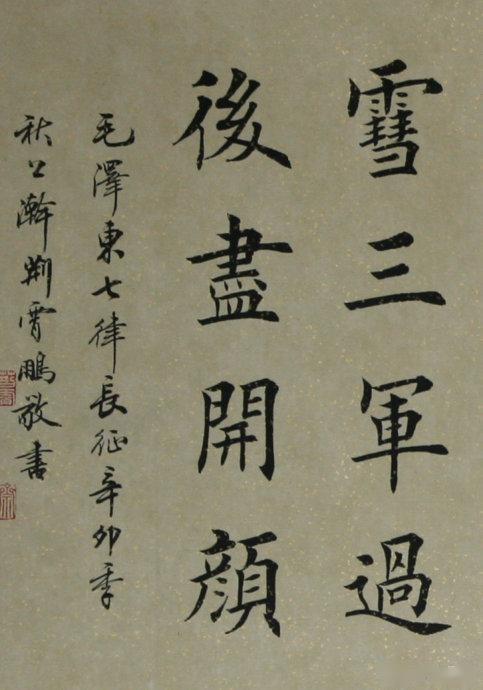 雪三軍過
後盡開顔
毛澤東七律長征辛卯季
秋公瀚荆霄鵬敬書